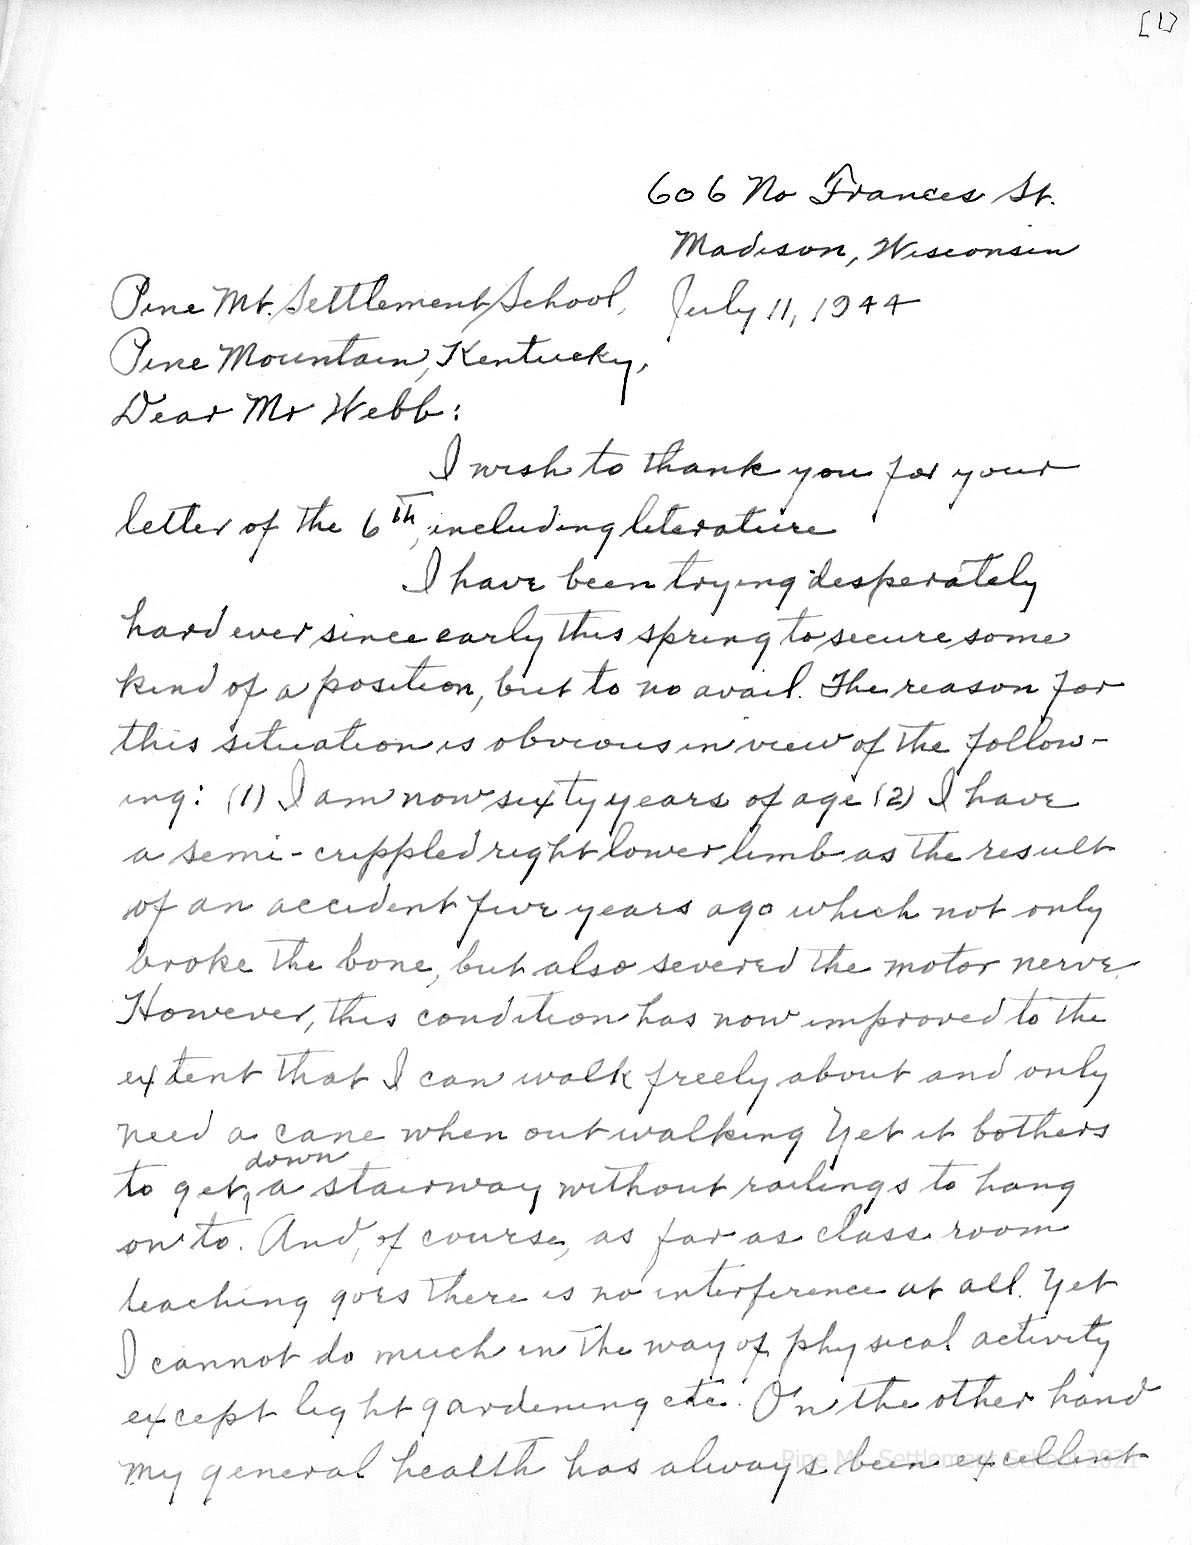 [1]
606 No Frances St.
Madison, Wisconsin
Pine Mt. Settlement School, July 11, 1944
Pine Mountain, Kentucky,
Dear Mr Webb:
I wish to thank you for your
letter of the 6th, including literature
I have been trying desperately
hard ever since early this spring to secure some
kind of a position, but to no avail. The reason for
this situation is obvious in view of the follow-
ing: (1) I am now sixty years of age (2) I have
a semi-crippled right lower limb as the result
of an accident five years ago which not only
broke the bone, but also severed the motor nerve.
However, this condition has now improved to the
extent that I can walk freely about and only
need a cane when out walking Yet it bothers
to get down a stairway without railings to hang
on to. And, of course, as far as class room
teaching goes there is no interference at all. Yet
I cannot do much in the way of physical activity
except light gardening etc. On the other hand
my general health has always been excellent
Pine Mt. Settlement School 2021